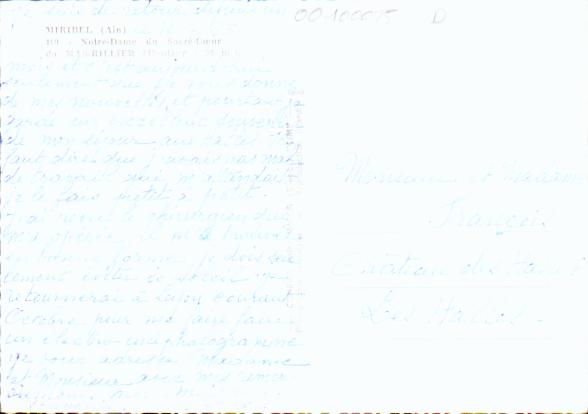 je suis de retour depuis un
00-100075 D
MIRIBEL (Ain)
101 - Notre-Dame du Sacré-Cœur
du MAS-RILLIER
mois et c'est aujourd'hui
seulement que je vous donne
de mes nouvelles, et pourtant je
garde un excellent souvenir
de mon séjour
faut dire que j'avais pas mal
de travail qui m'attendait
je le fais petit à petit.
J'ai revu le chirurgien qui
m'a opérée, il m'a trouvée
en bonne forme, je dois seu
lement éviter
retournerai à Lyon courant
Octobre pour me faire faire
un électro-encéphalogramme
Je vous adresse Madame
et Monsieur avec mes remer
Monsieur et Madame
François
Château des
Les Halles.